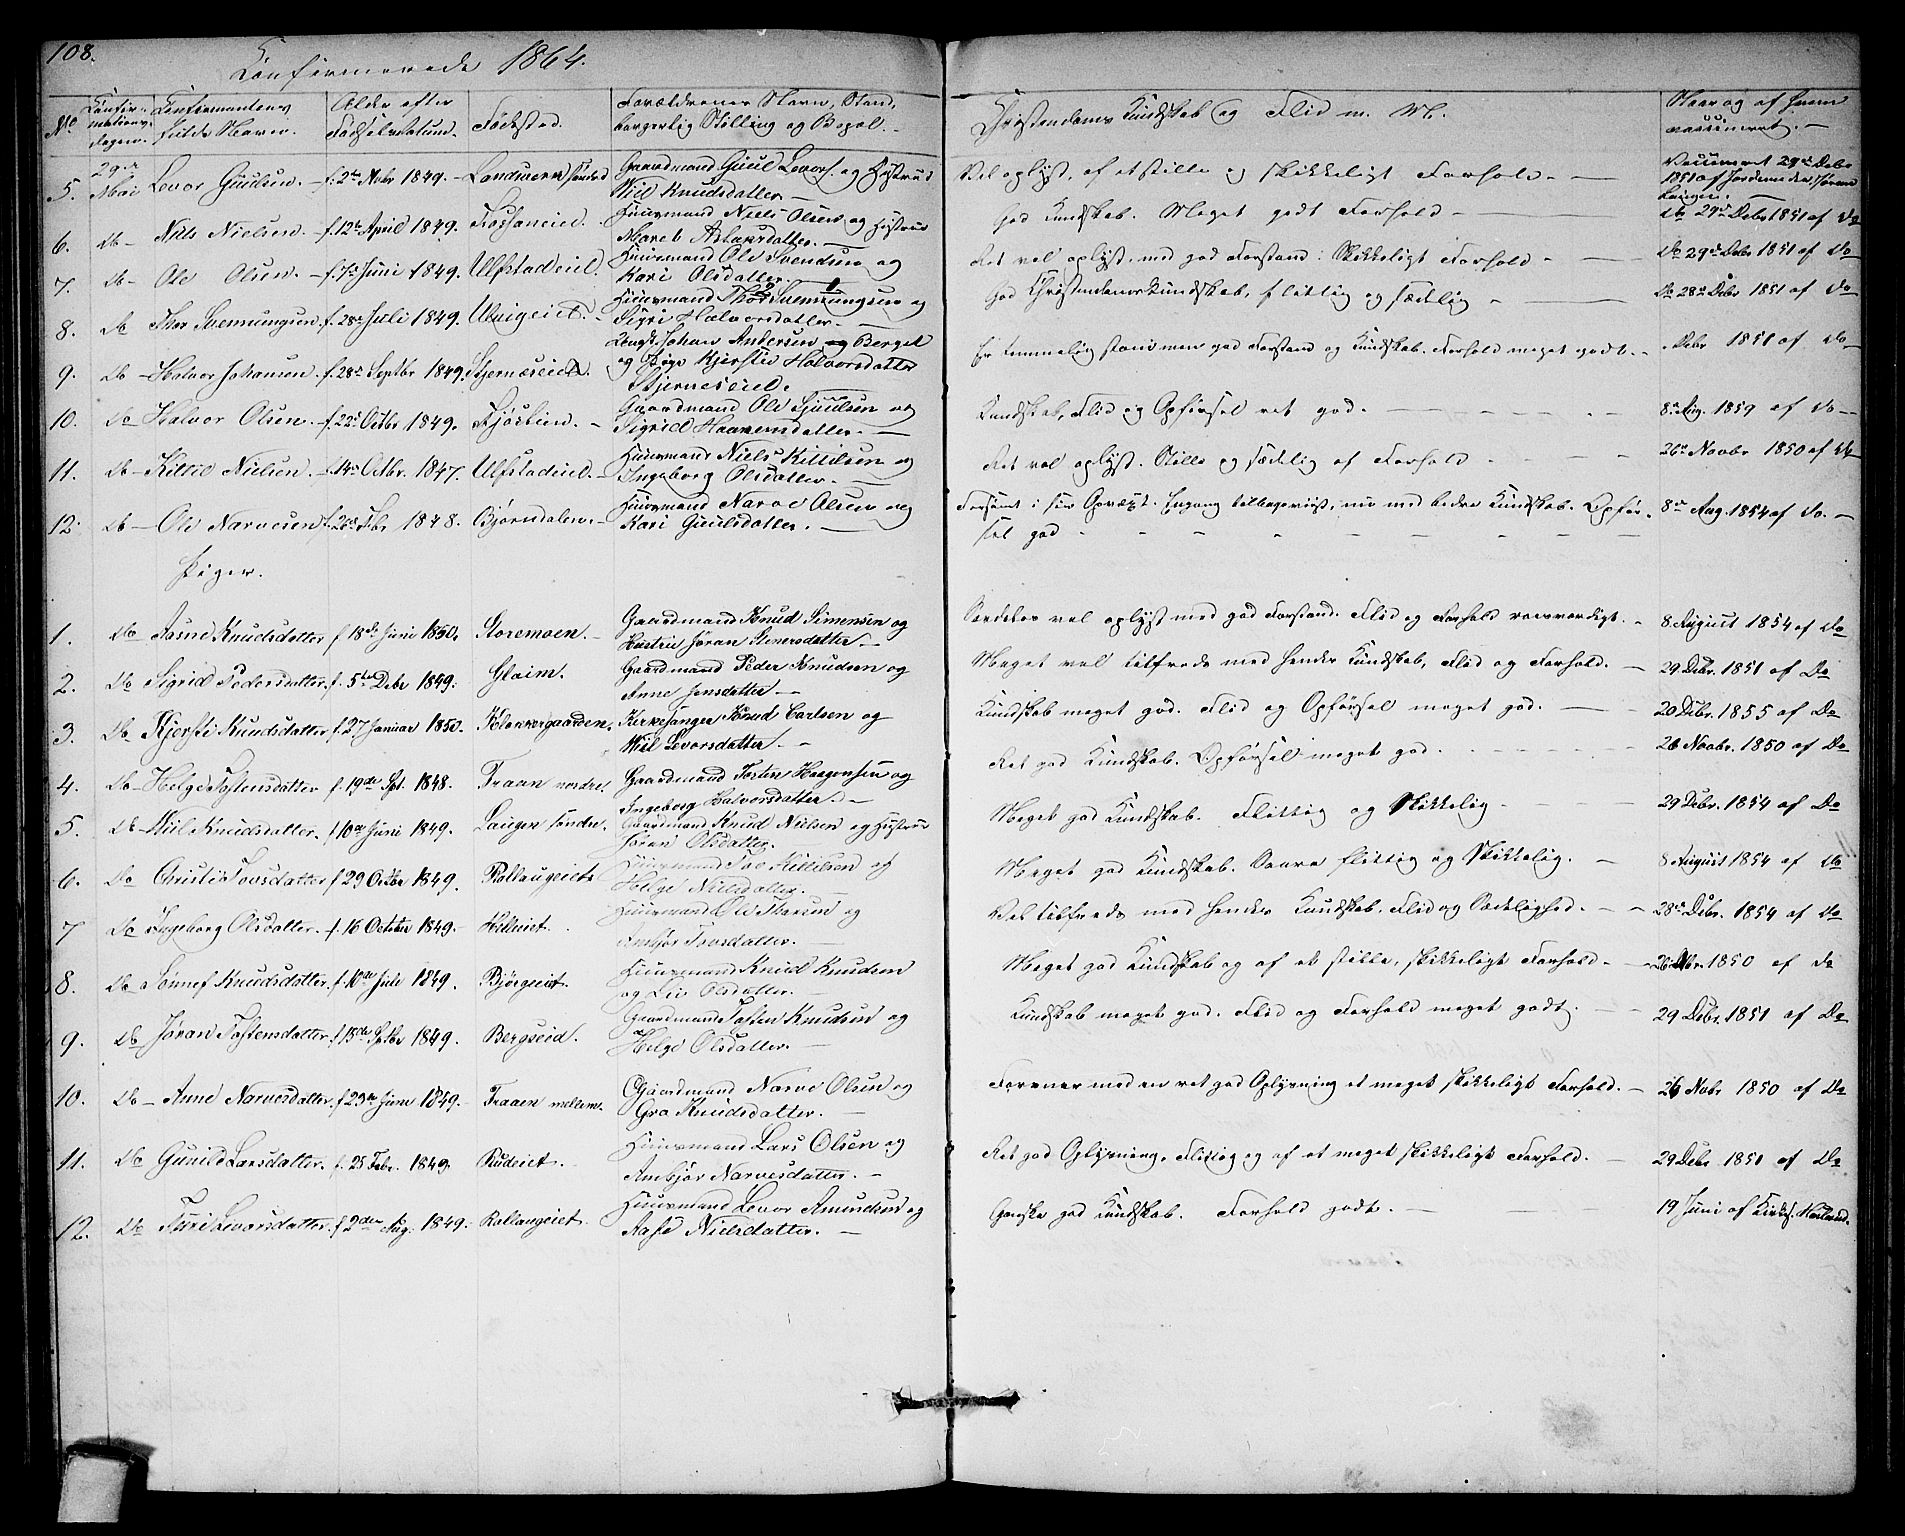 108.
Confirmerede 1864.
No
Confir-
mations-
dagen.
Confirmantens
fulde Navn.
Alder efter
Fødselsdatum.
Fødested.
Forældrenes Navn, Stand,
borgerlig Stilling og Bopæl.
Christendoms Kundskab og Flid m. M.
Naar og af hvem
vaccineret.
5. 29de Mai Levor Gulsen. f. 2den Nobr 1849. Landsverk søndre Gaardmand Guul Levors. og Hustrue
Wil Knudsdatter.
Vel oplyst, af et stille og skikkeligt Forhold.
Vaccineret 29de Debr
1851 af Jordemoder
6. do Niels Nielsen. f. 12te April 1849. Huusmand Niels Olsen og Hustrue
Maret Aslaksdatter.
God Kundskab. Meget godt Forhold
do 29de Debr 1851 af do
7. do Ole Olsen. f. 7de Juni 1849. Ulfstadeied. Huusmand Ole Svendsen og
Kari Olsdatter.
Ret vel oplyst, med god Forstand. Skikkeligt Forhold
do 29de Debr 1851 af do
8. do Thor Svennungsen f. 28de Juli 1849. Huusmand Thor Svennungsen og
Sigri Halvorsdatter.
God Christendomskundskab, flittig og sædelig
do 28de Debr 1851 af do
9. do Halvor Johansen. f. 28de Septbr 1849. Stjerneseied. Ungk. Johan Andersen Berget
og Pige Kjerstie Halvorsdatter
Stjerneseied.
Er temmelig men god Forstand og Kundskab. Forhold meget godt.
Debr 1851 af do
10. do Halvor Olsen. f. 22de Octbr 1849. Gaardmand Ole Sjulsen og
Sigrid Haavorsdatter.
Kundskab, Flid og Opførsel ret god.
8de Aug. 1859 af do
11. do Kittil Nielsen. f. 14de Octbr. 1847. Ulfstadeied. Huusmand Niels Kittilsen og
Ingeborg Olsdatter.
Ret vel oplyst. Stille og sædelig af Forhold
26de Novbr 1850 af do
12. do Ole Narvesen f. 26de Fbr 1848. Bjørndalen. Huusmand Narve Olsen og
Kari Guulsdatter.
Forsømt i sin Opvext. Engang tilbageviist, nu med bedre Kundskab. Opfør-
sel god
8de Aug. 1854 af do.
Piger.
1. do Aasne Knudsdatter f. 18de Juni 1850. Storemoen. Gaardmand Knud Simensen og
Hustru Jøran Gunersdatter
Særdeles vel oplyst med god Forstand. Flid og Forhold roesværdigt.
8 August 1854 af do
2. do Sigrid Pedersdatter f. 5te Debr 1849. Glaim. Gaardmand Peder Knudsen og
Anne Jensdatter
Meget vel tilfreds med hendes Kundskab, Flid og Forhold.
29 Debr. 1851 af Do
3. do Kjersti Knudsdatter f. 27 Januar 1850. Klokkergaarden. Kirkesanger Knud Carlsen og
Wiil Levorsdatter.
Kundskab meget god. Flid og Opførsel meget god.
20 Debr. 1855 af Do
4. do Helge Tostensdatter f. 19de Spt. 1848. Traaen nordre. Gaardmand Tosten Haagensen og
Ingeborg Halvorsdatter.
Ret god Kundskab. Opførsel meget god.
26 Novbr. 1850 af Do
5. do Wiil Knudsdatter. f. 10de Juni 1849. Laugen søndre. Gaardmand Knud Nielsen og Hustrue
Jøran Olsdatter.
Meget god Kundskab. Flittig og Skikkelig.
29 Debr. 1854 af Do
6. do Christie Tovsdatter f. 29 Octbr 1849. Rallaugeiet Huusmand Tov Kittilsen og
Helge Nielsdatter.
Meget god Kundskab. Saare flittig og Skikkelig.
8 August 1854 af do
7 do Ingeborg Olsdatter. f. 16 October 1849. Helleiet. Huusmand Ole Thorsen og
Ambjør Tovsdatter.
Vel tilfreds med hendes Kundskab, Flid og Sædelighed.
28de Debr. 1854 af Do
8. do Sønnef Knudsdatter. f. 10de Juli 1849. Bjørgeiet. Huusmand Knud Knudsen
og Liv Olsdatter.
Meget god Kundskab og af et stille, skikkeligt Forhold.
1850 af do
9. do Jøran Tostensdatter f. 15de Sptbr 1849. Bergseid. Gaardmand Tosten Knudsen og
Helge Olsdatter.
Kundskab meget god. Flid og Forhold meget godt.
29 Debr. 1851 af Do
10. do Anne Narvesdatter f. 23de Juni 1849. Traaen mellem. Gaardmand Narve Olsen og
Gro Knudsdatter.
Forener med en ret god Oplysning et meget skikkeligt Forhold.
26 Nobr 1850 af Do
11. do Gunild Larsdatter. f. 25 Febr. 1849. Rudeiet. Huusmand Lars Olsen og
Ambjør Narvesdatter.
Ret god Oplysning, flittig og af et meget skikkeligt Forhold.
29 Debr 1851 af Do
12. do Turi Levorsdatter. f. 2den Aug. 1849. Rallaugeiet. Huusmand Levor Amundsen og
Aase Nielsdatter.
Ganske god Kundskab. Forhold godt.
19 Juni af Kirkes.